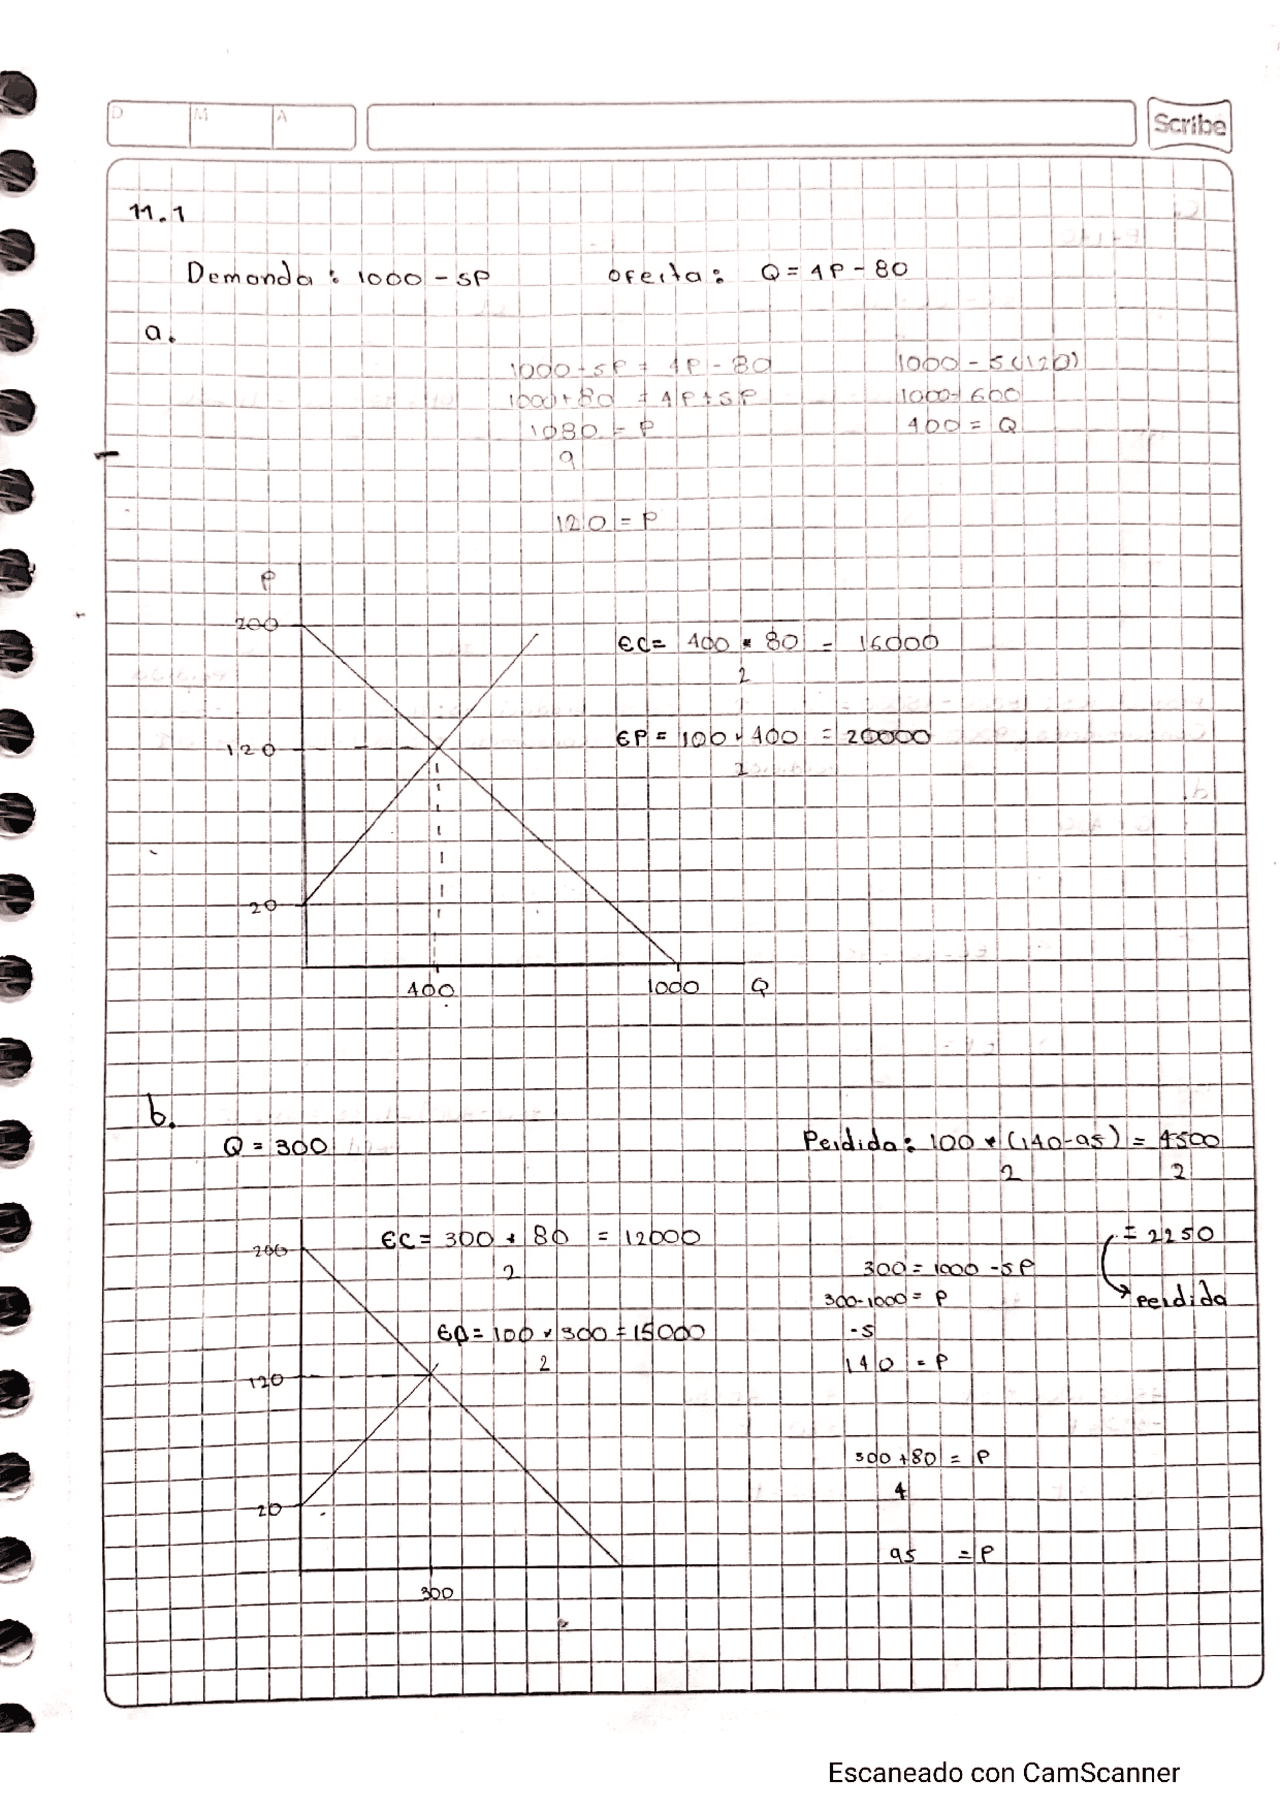 D M A
Scribe
11.1
Demanda: 1000 - 5P Oferta: Q = 4P - 80
a.
1000 - 5P = 4P - 80 1000 - 5(120)
1000 + 80 = 4P + 5P 1000 - 600
1080 = P 400 = Q
9
120 = P
P
200
EC = 400 * 80 = 16000
2
120
EP = 100 * 400 = 20000
2
20
400 1000 Q
b.
Q = 300 Perdida: 100 * (140-95) = 4500
2 2
EC = 300 * 80 = 12000 = 2250
200
2 300 = 1000 - 5P
300-1000 = P perdida
EP = 100 * 300 = 15000 -5
2 140 = P
120
300 + 80 = P
4
20
95 = P
300
Escaneado con CamScanner